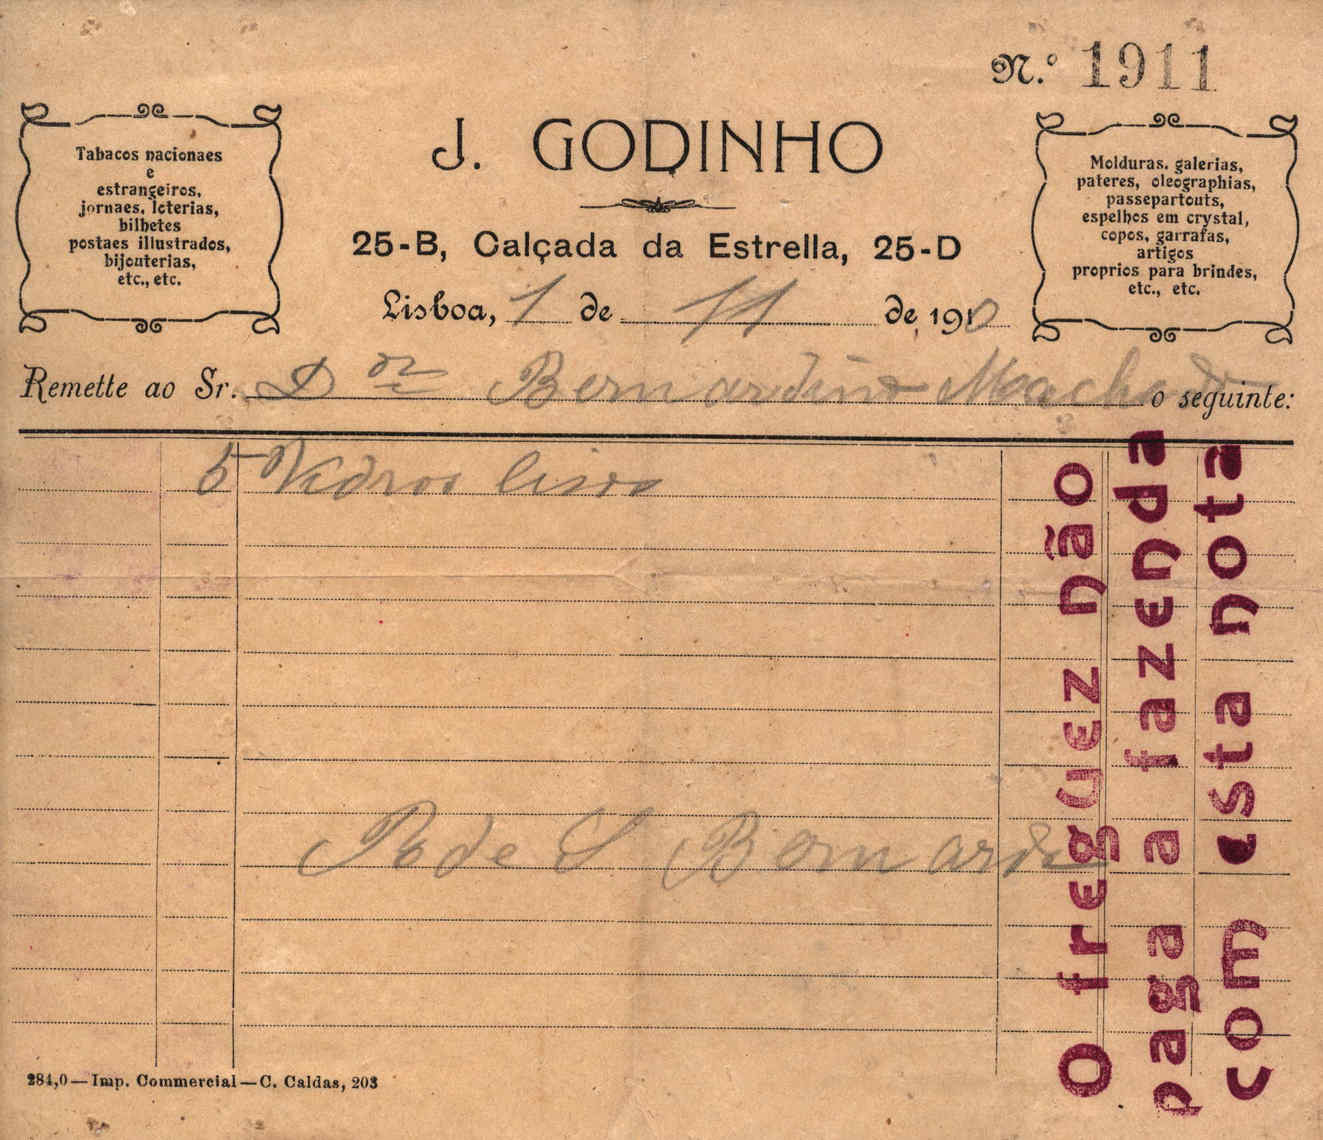 N.º 1911
Tabacos nacionaes
e
estrangeiros,
jornaes, loterias,
bilhetes
postaes illustrados,
bijouterias,
etc., etc.
J. GODINHO
25-B, Calçada da Estrella, 25-D
Lisboa, 1 de 11 de 1910
Molduras, galerias,
pateres, oleographias,
passepartouts,
espelhos em crystal,
copos, garrafas,
artigos
proprios para brindes,
etc., etc.
Remette ao Sr. Dor Bernardino Machado o seguinte:
5 Vidros lisos
R de S Bernardo
O freguez não
paga a fazenda
com esta nota
284,0—Imp. Commercial—C. Caldas, 203